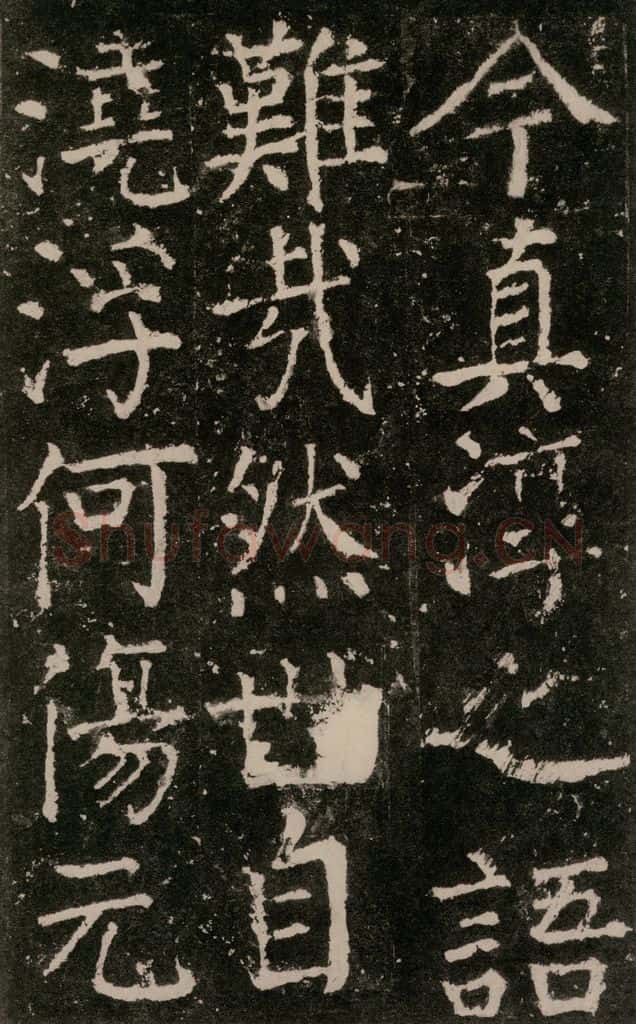 今真淳之語
難哉然世自
澆淳何傷元
Shufawang.CN